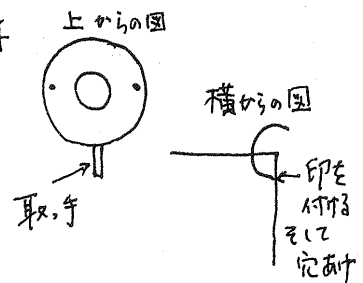 上からの図
取っ手
横からの図
印を
付ける
そして
穴あけ